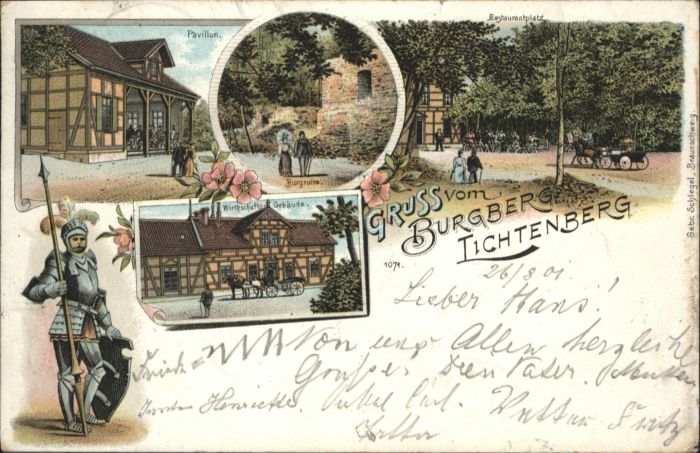 Pavillon.
Burgruine.
Restaurantplatz.
Wirthschafts-Gebäude.
Gruss vom
Burgberg
Lichtenberg
Gebr. Schlegel, Braunschweig.
1071.
26/8 01
Lieber Hans!
Von uns Allen herzliche
Grüße. Dein Vater. Mutter
Henriette. Onkel Carl. Vetter Fritz